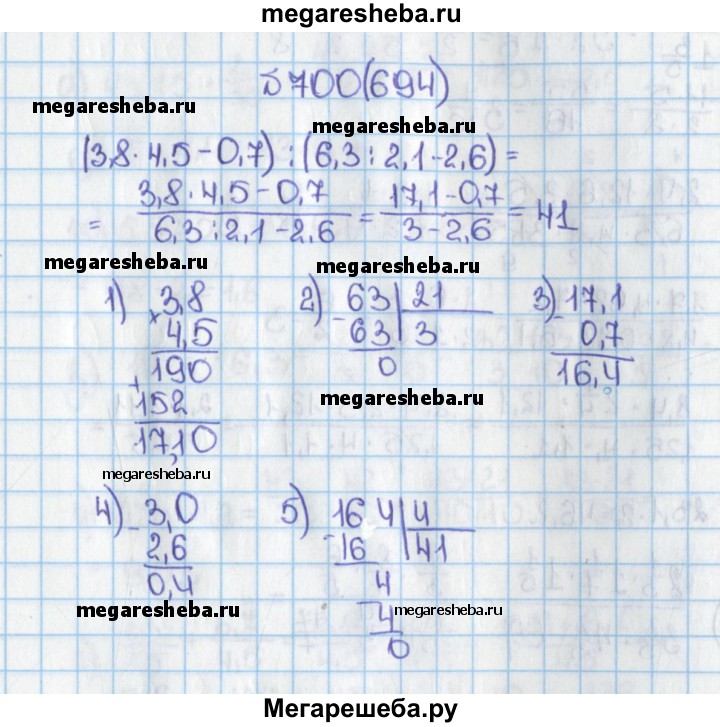 megaresheba.ru
№700(694)
megaresheba.ru
megaresheba.ru
(3,8 · 4,5 - 0,7) : (6,3 : 2,1 - 2,6) =
= (3,8 · 4,5 - 0,7)/(6,3 : 2,1 - 2,6) = (17,1 - 0,7)/(3 - 2,6) = 41
megaresheba.ru
megaresheba.ru
1) 3,8 2) 63 | 21 3) 17,1
× 4,5 - 63 | 3 - 0,7
190 0 16,4
+ 152 megaresheba.ru
17,10
megaresheba.ru
4) 3,0 5) 164 | 4
- 2,6 - 16 | 41
0,4 4
megaresheba.ru - 4 megaresheba.ru
0
Мегарешеба.ру